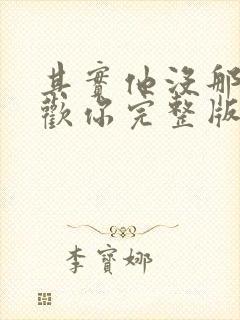 其實他沒那
歡你完整版
李寶娜